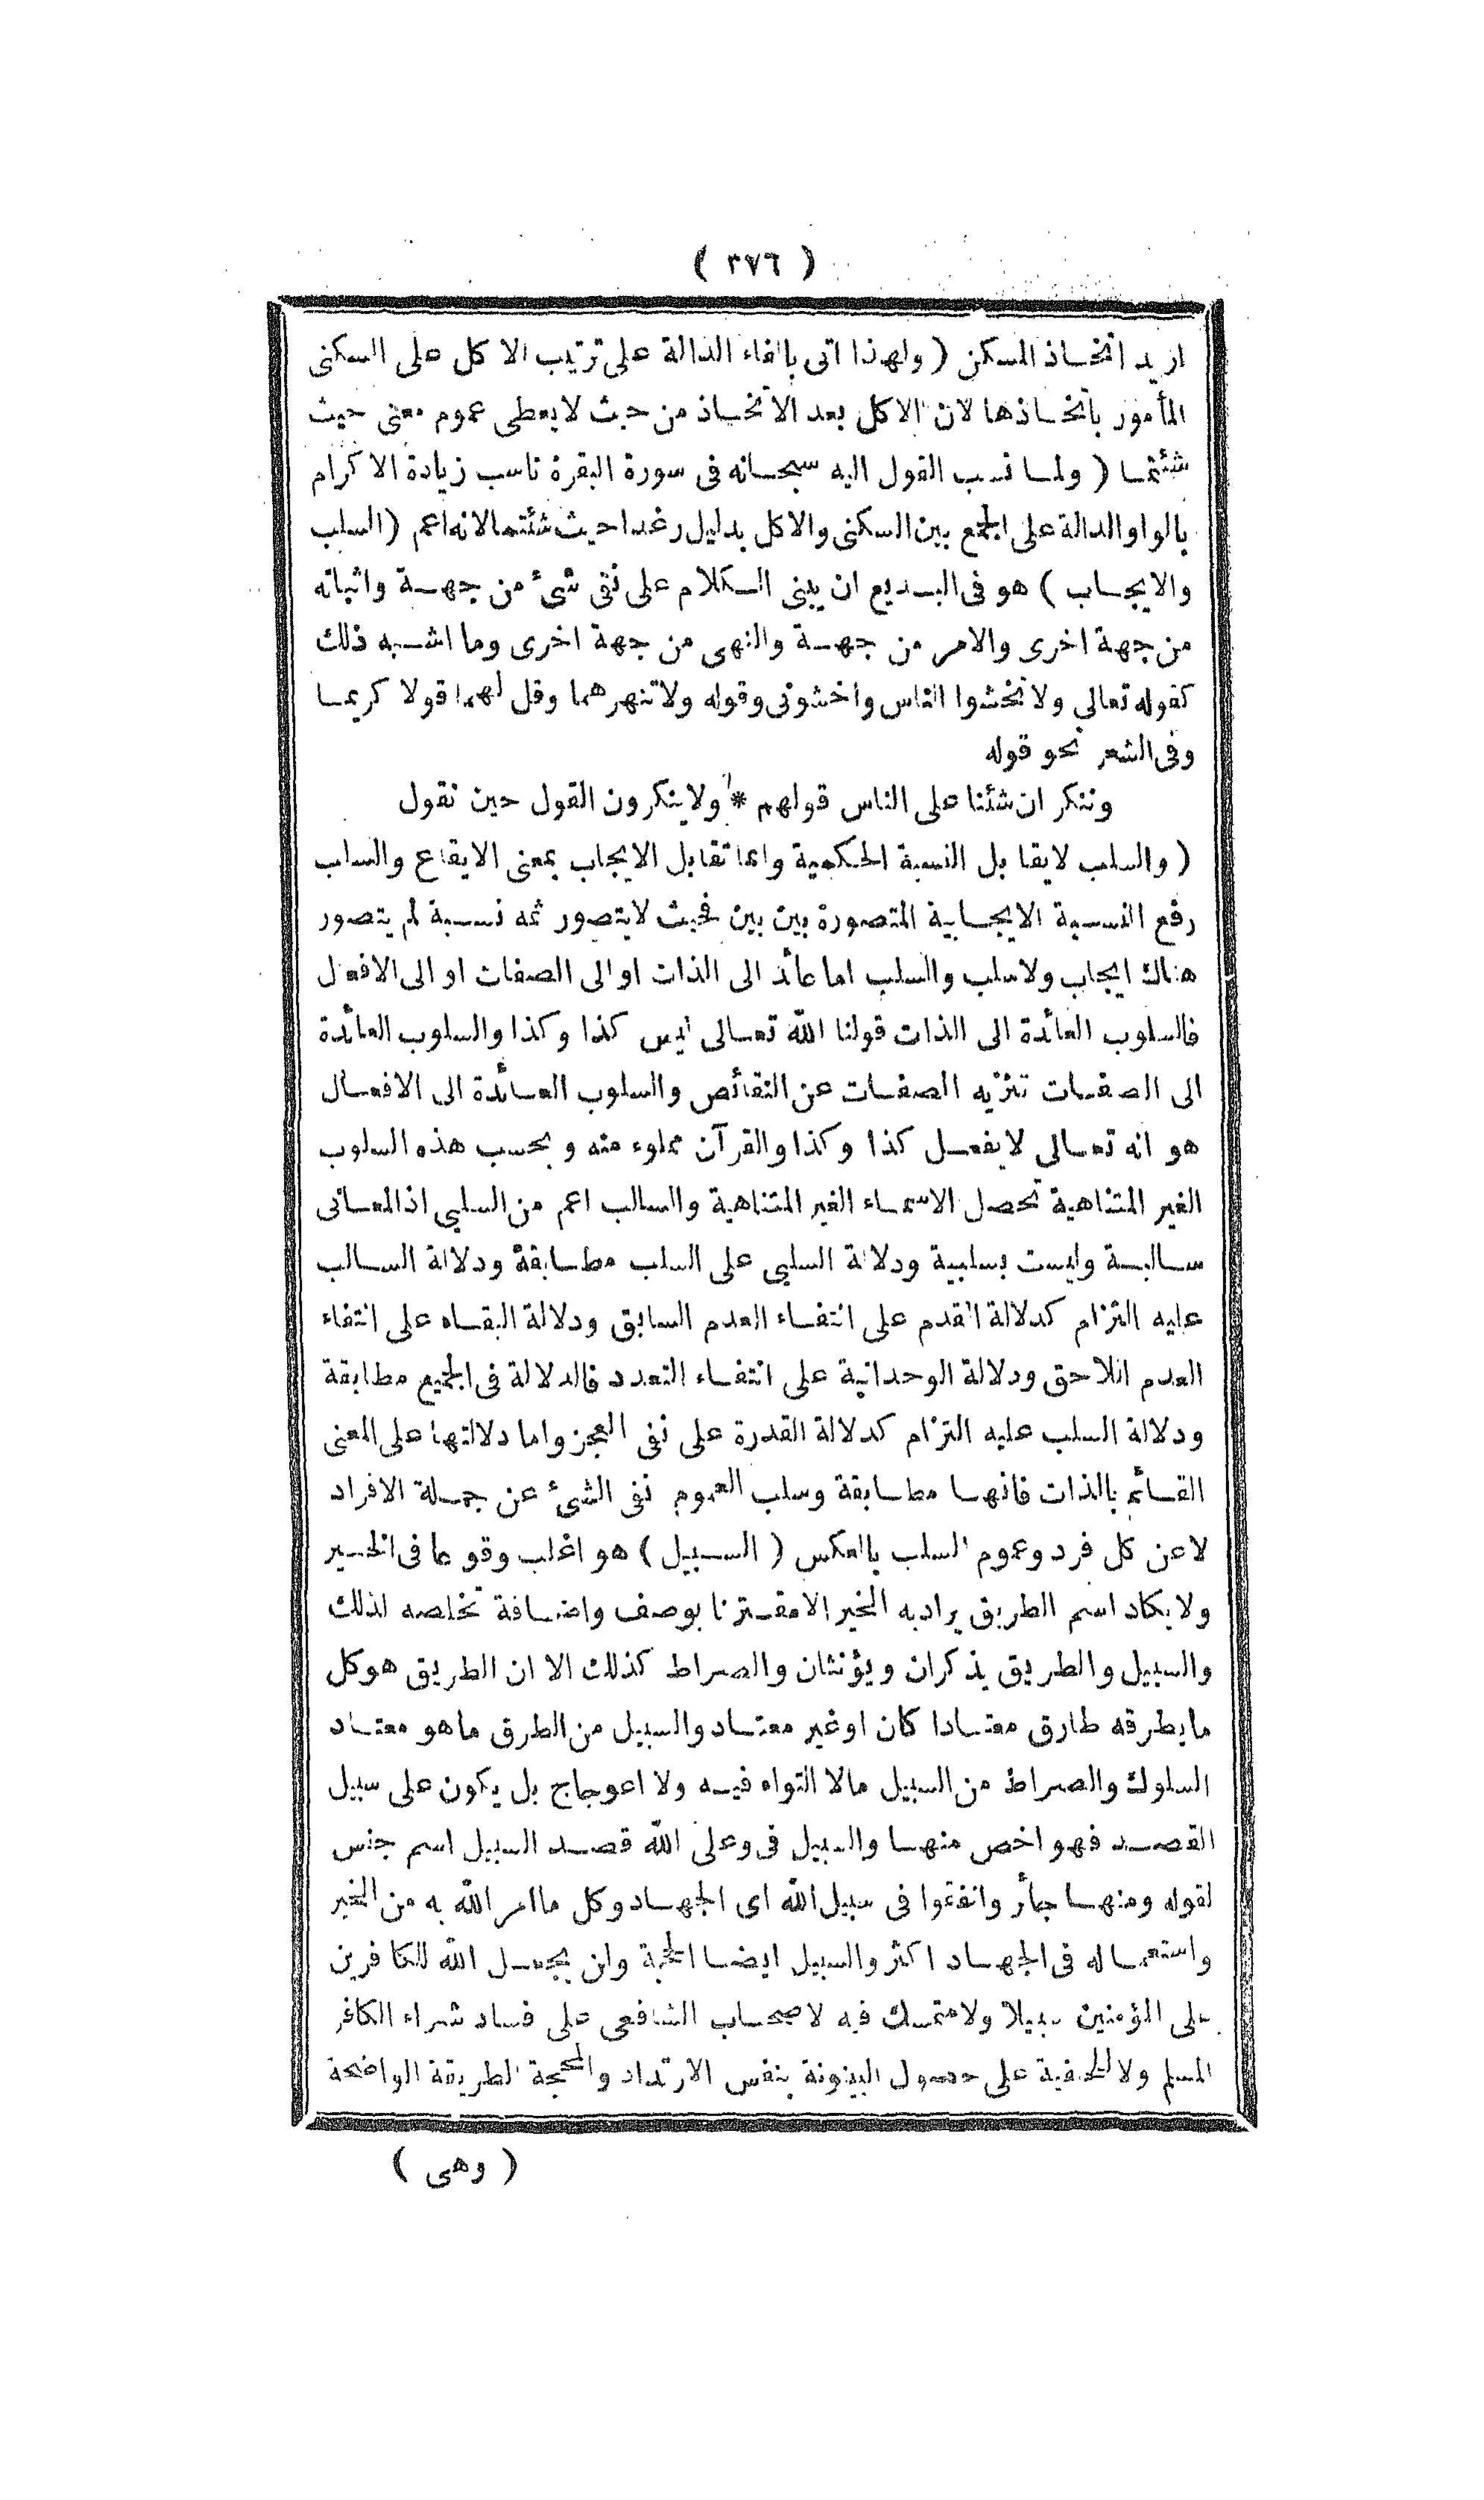 ( ٣٧٦ )
اريد اتخاذ المسكن ( ولهذا اتى بالفاء الدالة على ترتيب الاكل على السكنى
المأمور باتخاذها لان الاكل بعد الاتخاذ من حيث لا يعطى عموم معنى حيث
شئتما ( ولما نسب القول اليه سبحانه فى سورة البقرة ناسب زيادة الاكرام
بالواو الدالة على الجمع بين السكنى والاكل بدليل رغدا حيث شئتما لانه اعم ( السلب
والايجاب ) هو فى البديع ان يبنى الكلام على نفى شئ من جهة واثباته
من جهة اخرى والامر من جهة والنهى من جهة اخرى وما اشبه ذلك
كقوله تعالى ولا تخشوا الناس واخشونى وقوله ولا تنهرهما وقل لهما قولا كريما
وفى الشعر نحو قوله
وننكر ان شئنا على الناس قولهم * ولا ينكرون القول حين نقول
( والسلب لايقابل النسبة الحكمية وانما تقابل الايجاب بمعنى الايقاع والسلب
رفع النسبة الايجابية المتصورة بين بين فحيث لايتصور ثمه نسبة لم يتصور
هناك ايجاب ولاسلب والسلب اما عائد الى الذات او الى الصفات او الى الافعال
فالسلوب العائدة الى الذات قولنا الله تعالى ليس كذا وكذا والسلوب العائدة
الى الصفات تنزيه الصفات عن النقائص والسلوب العائدة الى الافعال
هو انه تعالى لايفعل كذا وكذا والقرآن مملوء منه وبحسب هذه السلوب
الغير المتناهية تحصل الاسماء الغير المتناهية والسالب اعم من السلبى اذ المعانى
سالبة وليست بسلبية ودلالة السلبى على السلب مطابقة ودلالة السالب
عليه التزام كدلالة القدم على انتفاء العدم السابق ودلالة البقاء على انتفاء
العدم اللاحق ودلالة الوحدانية على انتفاء التعدد فالدلالة فى الجميع مطابقة
ودلالة السلب عليه التزام كدلالة القدرة على نفى العجز واما دلالتها على المعنى
القائم بالذات فانها مطابقة وسلب العموم نفى الشئ عن جملة الافراد
لاعن كل فرد وعموم السلب بالعكس ( السبيل ) هو اغلب وقوعا فى الخير
ولا يكاد اسم الطريق يراد به الخير الا مقترنا بوصف واضافة تخلصه لذلك
والسبيل والطريق يذكران ويؤنثان والصراط كذلك الا ان الطريق هو كل
مايطرقه طارق معتادا كان اوغير معتاد والسبيل من الطرق ماهو معتاد
السلوك والصراط من السبيل مالا التواء فيه ولا اعوجاج بل يكون على سبيل
القصد فهو اخص منها والسبيل فى وعلى الله قصد السبيل اسم جنس
لقوله ومنها جائر وانفقوا فى سبيل الله اى الجهاد وكل ماامر الله به من الخير
واستعماله فى الجهاد اكثر والسبيل ايضا الحجة ولن يجعل الله للكافرين
على المؤمنين سبيلا ولامتمسك فيه لاصحاب الشافعى على فساد شراء الكافر
المسلم ولا للحنفية على حصول البينونة بنفس الارتداد والمحجة الطريقة الواضحة
( وهى )